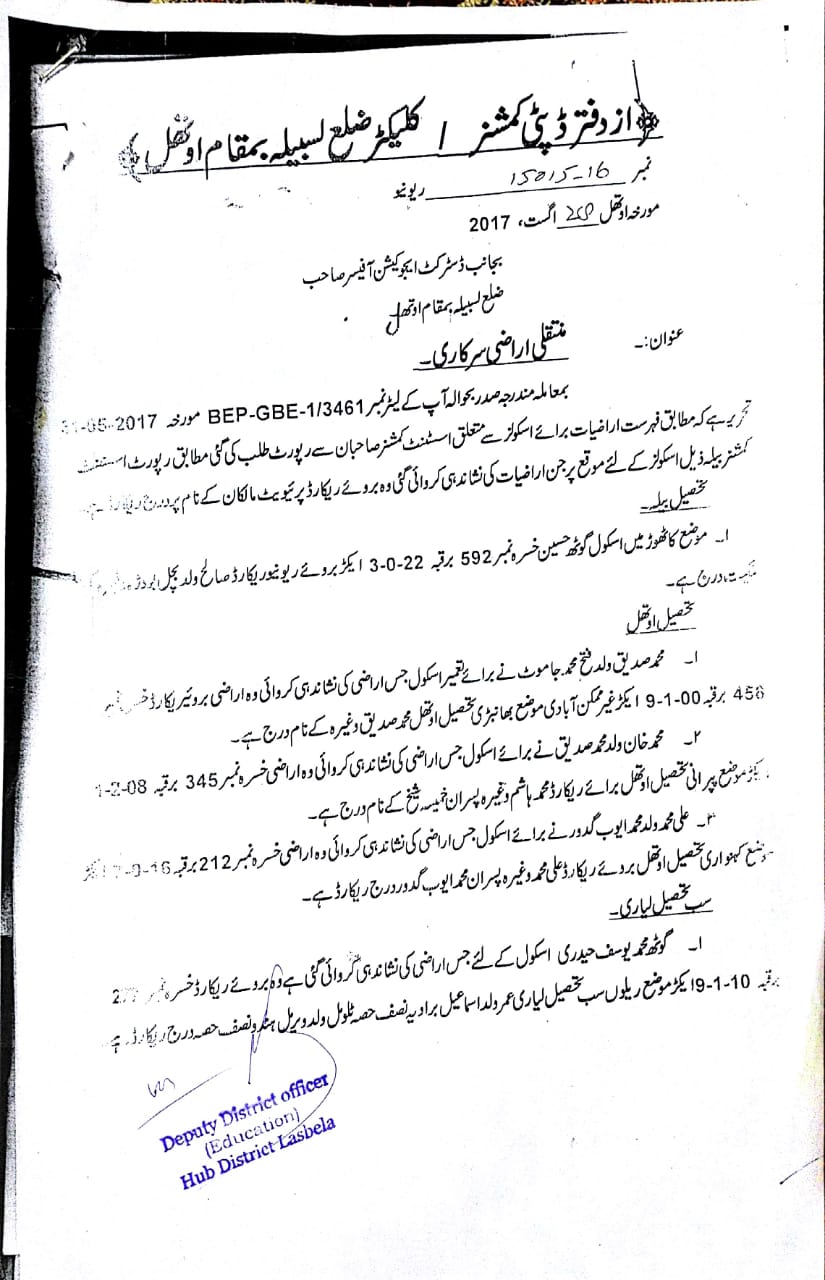 از دفتر ڈپٹی کمشنر / کلیکٹر ضلع لسبیلہ بمقام اوتھل
نمبر 15015-16 ریونیو
مورخہ اوتھل اگست، 2017
بجانب ڈسٹرکٹ ایجوکیشن آفیسر صاحب
ضلع لسبیلہ بمقام اوتھل
عنوان:۔ منتقلی اراضی سرکاری۔
بمعاملہ مندرجہ صدر بحوالہ آپ کے لیٹر نمبر BEP-GBE-1/3461 مورخہ 31-05-2017
تحریر ہے کہ مطابق فہرست اراضیات برائے اسکولز سے متعلق اسسٹنٹ کمشنر صاحبان سے رپورٹ طلب کی گئی مطابق رپورٹ اسسٹنٹ
کمشنر بیلہ ذیل اسکولز کے لئے موقع پر جن اراضیات کی نشاندہی کروائی گئی وہ بروئے ریکارڈ پرئیویٹ مالکان کے نام پر درج ریکارڈ ہے۔
تحصیل بیلہ۔
۱۔ موضع کاٹھوڑ میں اسکول گوٹھ حسین خسرہ نمبر 592 برقبہ 22-0-3 ایکڑ بروئے ریونیو ریکارڈ صالح ولد بچل
درج ہے۔
تحصیل اوتھل
۱۔ محمد صدیق ولد فتح محمد جاموٹ نے برائے تعمیر اسکول جس اراضی کی نشاندہی کروائی وہ اراضی بروئیر یکارڈ خسرہ نمبر
456 برقبہ 00-1-9 ایکڑ غیر ممکن آبادی موضع بھانبڑی تحصیل اوتھل محمد صدیق وغیرہ کے نام درج ہے۔
۲۔ محمد خان ولد محمد صدیق نے برائے اسکول جس اراضی کی نشاندہی کروائی وہ اراضی خسرہ نمبر 345 برقبہ 08-2-1
ایکڑ موضع پیرانی تحصیل اوتھل برائے ریکارڈ محمد ہاشم وغیرہ پسران خمیسہ شیخ کے نام درج ہے۔
۳۔ علی محمد ولد محمد ایوب گدور نے برائے اسکول جس اراضی کی نشاندہی کروائی وہ اراضی خسرہ نمبر 212 برقبہ
موضع کہنواری تحصیل اوتھل بروئے ریکارڈ علی محمد وغیرہ پسران محمد ایوب گدور درج ریکارڈ ہے۔
سب تحصیل لیاری۔
۱۔ گوٹھ محمد یوسف حیدری اسکول کے لئے جس اراضی کی نشاندہی کروائی گئی ہے وہ بروئے ریکارڈ خسرہ نمبر
برقبہ 10-1-9 ایکڑ موضع ریلوں سب تحصیل لیاری عمر ولد اسماعیل برادیہ نصف حصہ ٹلومل ولد ویرمل ہندو نصف حصہ درج ریکارڈ ہے
Deputy District officer
(Education)
Hub District Lasbela